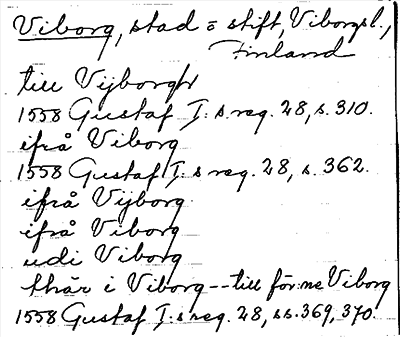 Viborg, stad o stift, Viborgsl.,
Finland
till Vijborgh
1558 Gustaf I:s reg. 28, s. 310.
ifrå Viborg
1558 Gustaf I:s reg. 28, s. 362.
ifrå Vijborg
ifrå Viborg
udi Viborg
thär i Viborg -- till för:ne Viborg
1558 Gustaf I:s reg. 28, ss. 369, 370.